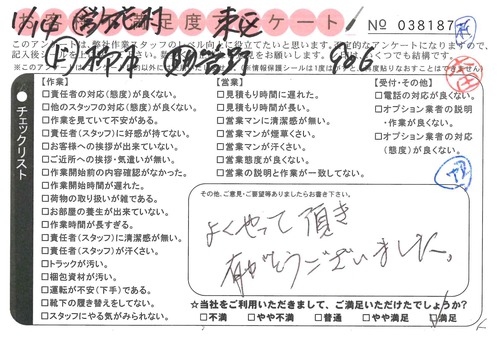 お客様満足度アンケート
№ 038187
このアンケートは、弊社作業スタッフのレベル向上に役立てたいと思います。
【作業】
□責任者の対応(態度)が良くない。
□他のスタッフの対応(態度)が良くない。
□作業を見ていて不安がある。
□責任者(スタッフ)に好感が持てない。
□お客様への挨拶が出来ていない。
□ご近所への挨拶・気遣いが無い。
□作業開始前の内容確認がなかった。
□作業開始時間が遅れた。
□荷物の取り扱いが雑である。
□お部屋の養生が出来ていない。
□作業時間が長すぎる。
□責任者(スタッフ)に清潔感が無い。
□責任者(スタッフ)が汗くさい。
□トラックが汚い。
□梱包資材が汚い。
□運転が不安(下手)である。
□靴下の履き替えをしてない。
□スタッフにやる気がみられない。
●チェックリスト
【営業】
□見積もり時間に遅れた。
□見積もり時間が長い。
□営業マンに清潔感が無い。
□営業マンが煙草くさい。
□営業マンが汗くさい。
□営業態度が良くない。
□営業の説明と作業が一致してない。
【受付・その他】
□電話の対応が良くない。
□オプション業者の説明・作業が良くない。
□オプション業者の対応(態度)が良くない。
その他、ご意見・ご要望等ありましたらお書き下さい。
よくやって頂き
有がとうございました。
☆当社をご利用いただきまして、ご満足いただけたでしょうか?
□不満 □やや不満 □普通 □やや満足 □満足